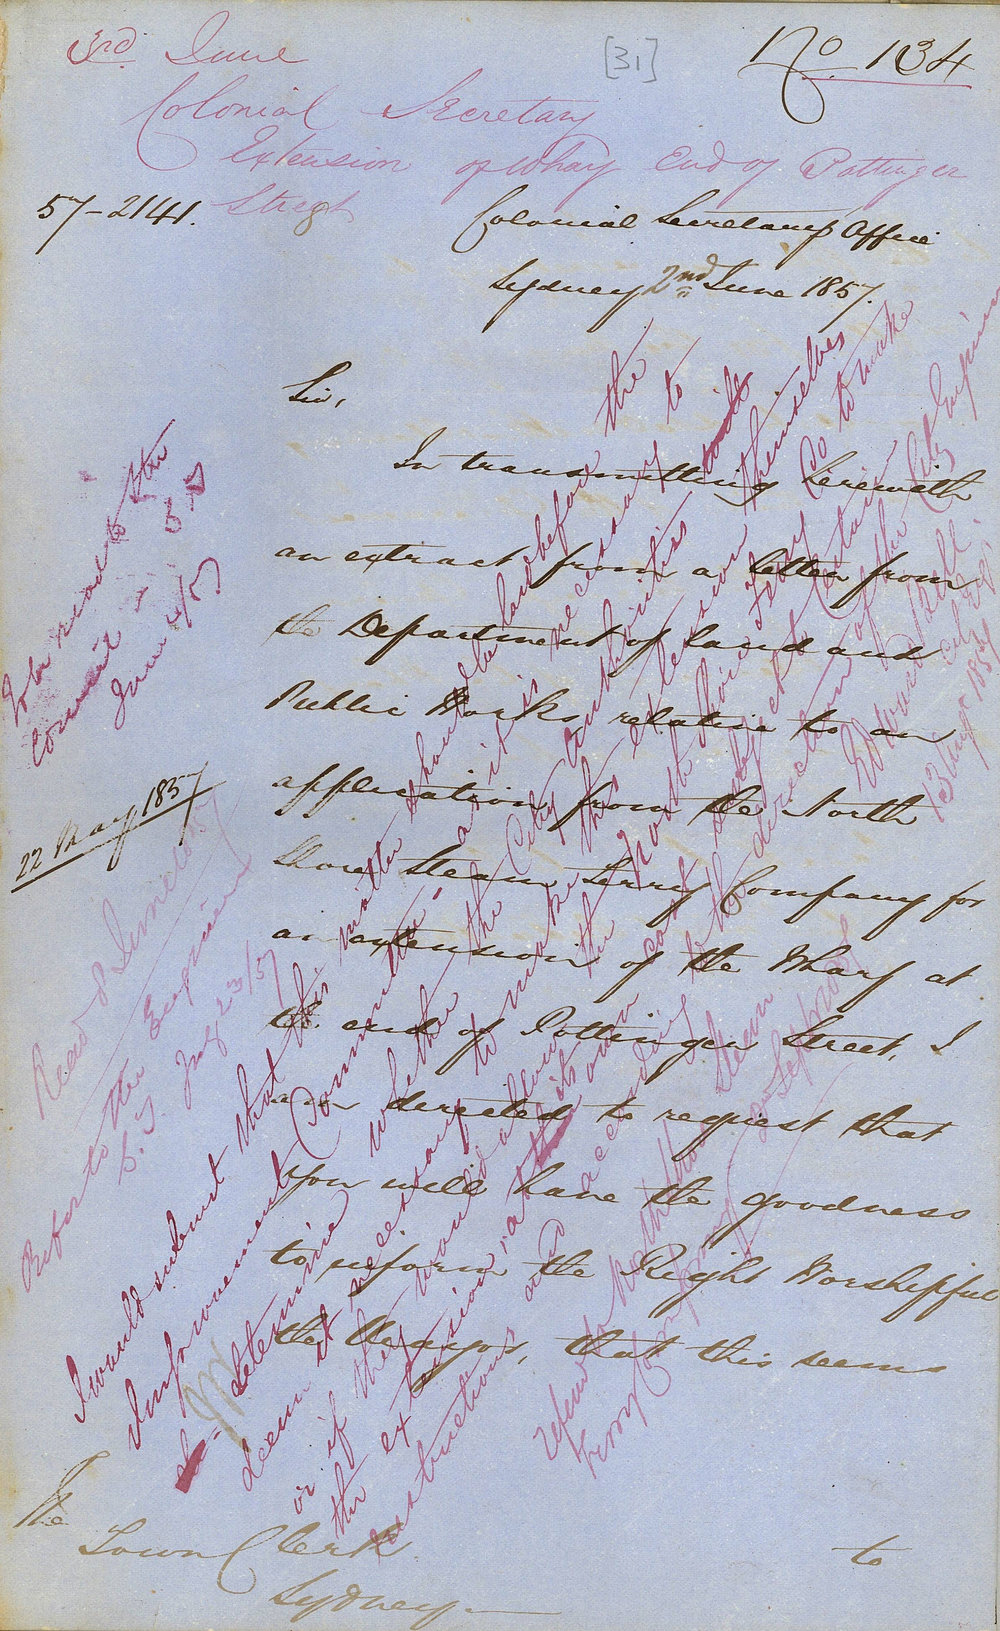 3rd June
[31]
No. 134
Colonial Secretary
Extension of Wharf End of Pottinger
Street
57-2141.
Colonial Secretarys Office
Sydney 2nd June 1857.
Sir,
In transmitting herewith
an extract from a letter from
the Department of Land and
Public Works, relative to an
application from the North
Shore Steam Ferry Company for
an extension of the Wharf at
the end of Pottinger Street, I
am directed to request that
you will have the goodness
to inform the Right Worshipful
the Mayor, that this seems
to
The
Town Clerk
Sydney
To be read to the
Council
June 4/57
22 May 1857
Read
Refer to the Engineer
July 23/57
I would submit that this matter should be laid before the
Improvement Committee as it is necessary to
determine whether the City authorities will
deem it necessary to make the extension themselves
or if they would allow the North Shore Ferry Co to make
the extension at its own cost subject to certain
instructions and according to the direction of the City Engineer
Edward Bell
City Eng.
13 Augt 1857
Refer to North Shore Steam
Ferry Company